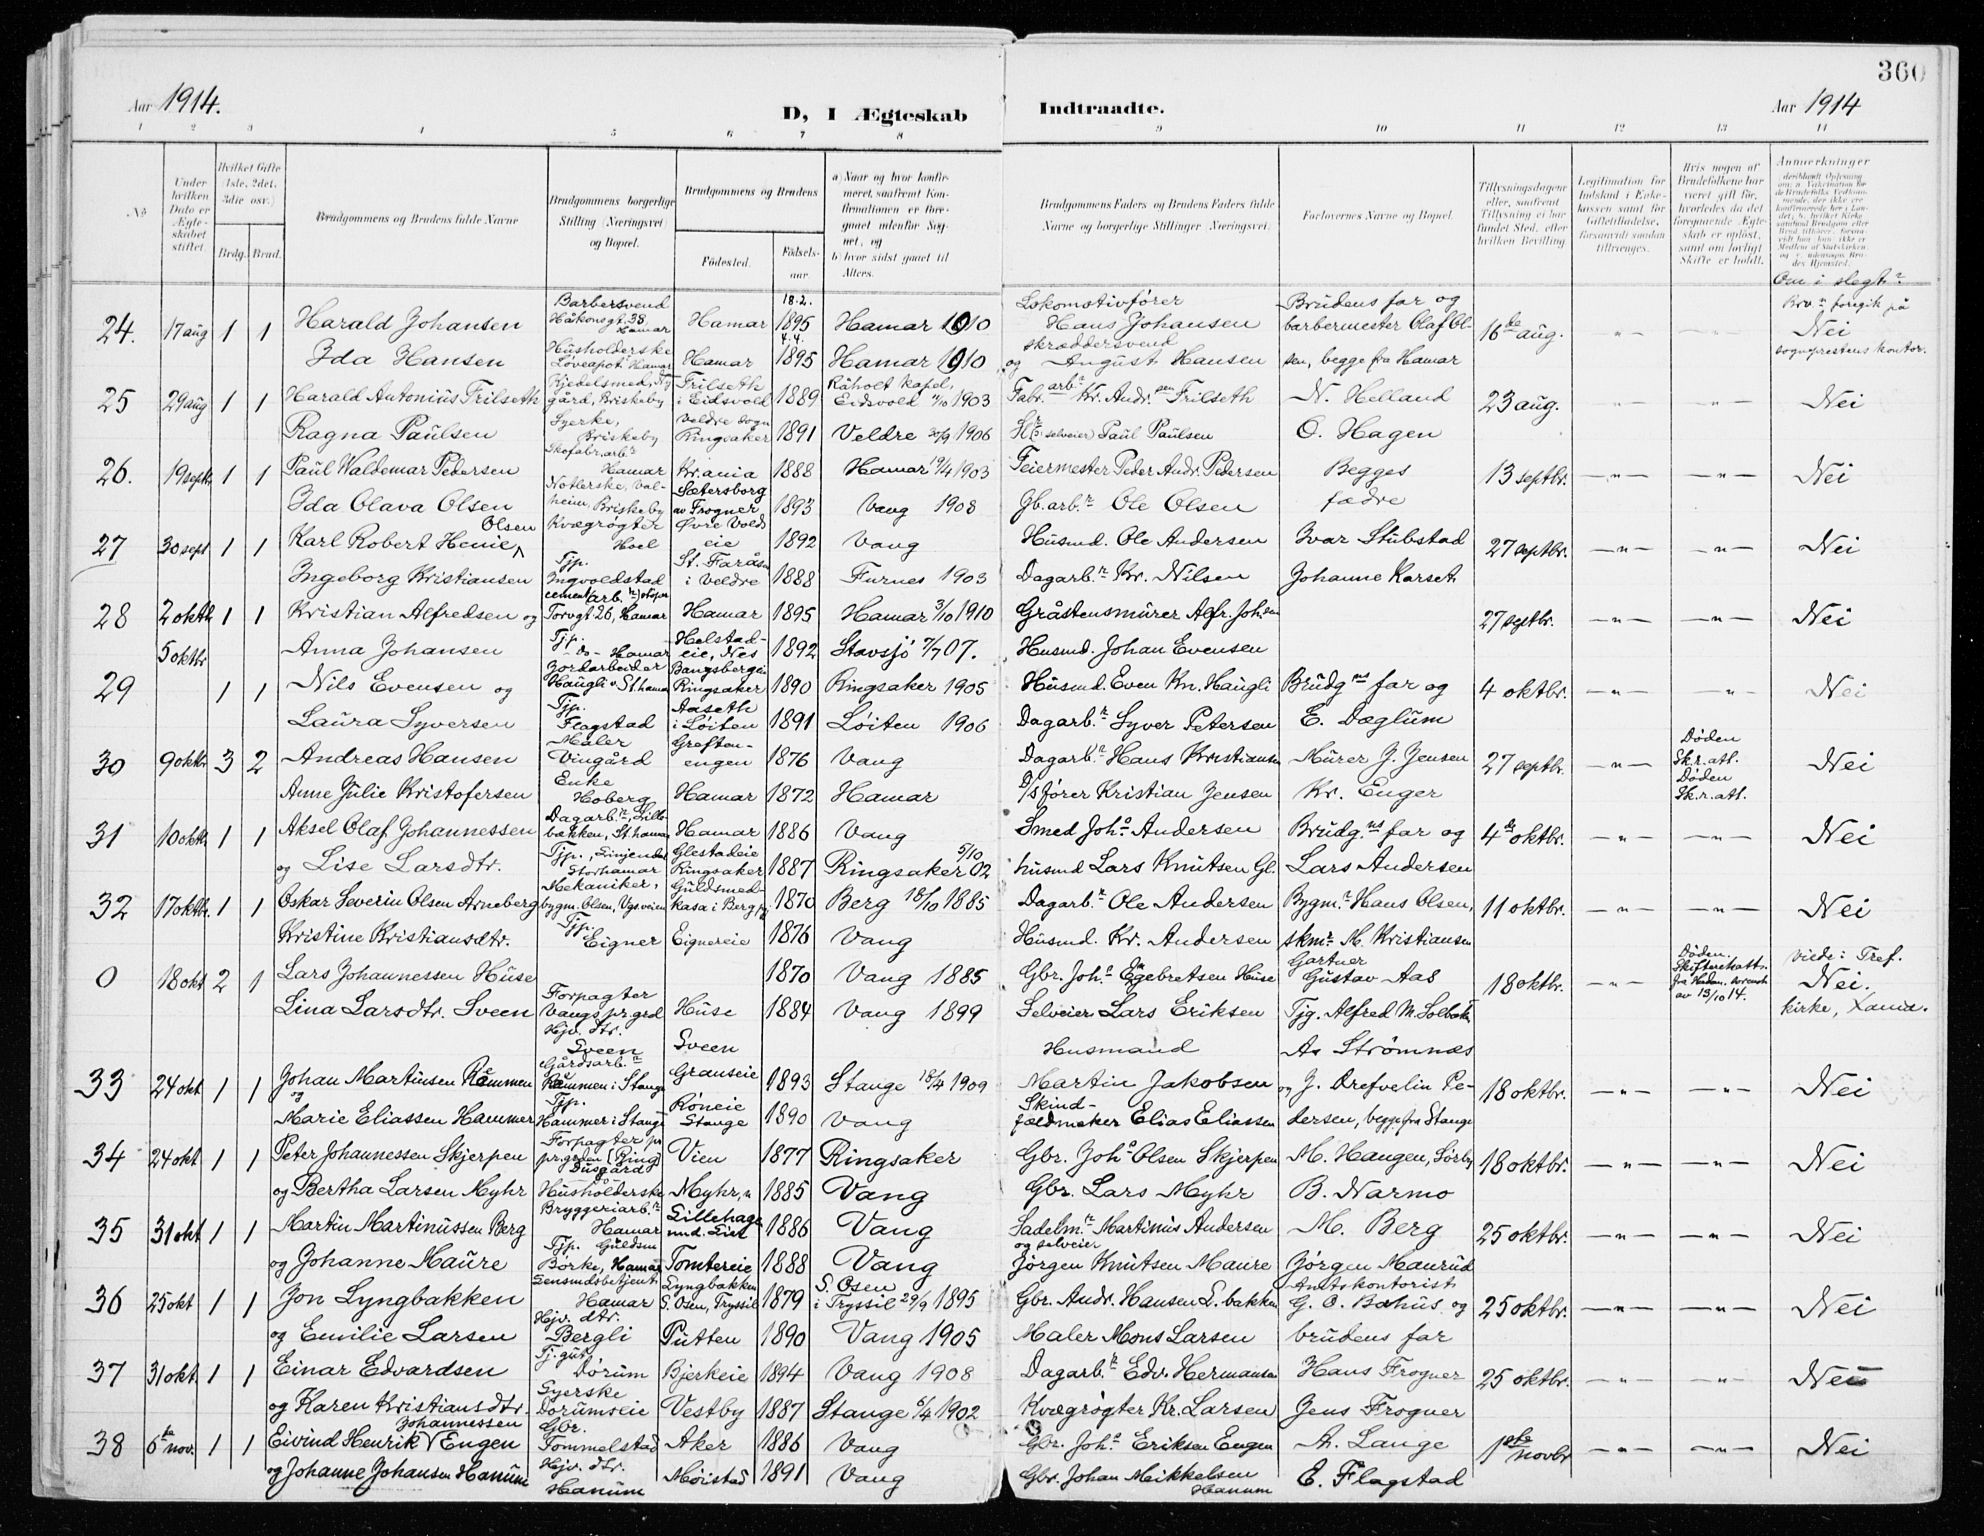 360
Aar 1914.
D, I Ægteskab Indtraadte.
Aar 1914
1 2 3 4 5 6 7 8 9 10 11 12 13 14
No
Under hvilken Dato er Ægteskabet stiftet.
Hvilket Gifte (1ste, 2det, 3die osv.)
Brdg. Brud.
Brudgommens og Brudens fulde Navne
Brudgommens borgerlige Stilling (Næringsvei) og Bopæl.
Brudgommens og Brudens
Fødested. Fødselsaar.
a) Naar og hvor konfirmeret, saafremt Konfirmationen er foregaaet udenfor Sognet, og
b) hvor sidst gaaet til Alters.
Brudgommens Faders og Brudens Faders fulde Navne og borgerlige Stillinger (Næringsvei)
Forlovernes Navne og Bopæl.
Tillysningsdagene eller, saafremt Tillysning ei har fundet Sted, efter hvilken Bevilling
Legitimation for Indskud i Enkekassen samt for Giftetilladelse, forsaavidt saadan tiltrænges.
Hvis nogen af Brudefolkene har været gift før, hvorledes da det foregaaende Ægteskab er opløst, samt om lovligt Skifte er holdt.
Anmerkninger
Om i slegt?
24. 17 aug 1 1 Harald Johansen Barbersvend Håkonsgt. 38 Hamar Hamar 18.2. 1895 Hamar 1910 Lokomotivfører Hans Johansen Brudens far og barbermester Olaf Ol- 16de aug. -"- Brv. foregik på Nei
Ida Hansen Husholderske Løveapot. Hamar Hamar 4.4. 1895 Hamar 1910 skræddersvend og August Hansen sen, begge fra Hamar sogneprestens kontor.
25 29 aug 1 1 Harald Antonius Frilseth Kjedelsmed, Ny gård, Briskeby Frilseth i Eidsvold 1889 Råholt kapel, Eidsvold 1903 Fabr. arbr Kr. Andr.sen Frilseth N. Helland 23 aug. -"- -"- Nei
Ragna Paulsen Syerke, Briskeby Veldre sogn Ringsaker 1891 Veldre 30/9 1906 selveier Paul Paulsen O. Hagen
26. 19 septbr 1 1 Paul Waldemar Pedersen Skofabr.arbr Hamar Kr.ania 1888 Hamar 19/4 1903 Feiermester Peder Andr. Pedersen Begges 13 septbr. -"- -"- Nei
Ida Olava Olsen Valheim, Briskeby Sætersborg av Frogner 1893 Vang 1908 Gb.arbr Ole Olsen fædre
27 30 sept 1 1 Karl Robert Henie Olsen Kvægrøgter Hoel Øvre Volds eie 1892 Vang Husmd. Ole Andersen Ivar Stubstad 27 septbr. -"- -"- Nei
Ingeborg Kristiansen Tjp. Ingvoldstad St. Faråsen i Veldre 1888 Furnes 1903 Dagarbr Kr. Nilsen Johanne Karset
28 2 oktbr 1 1 Kristian Alfredsen og cementarbr Torvgt 26, Hamar Hamar 1895 Hamar 3/10 1910 Gråstensmurer Alfr. Joh.sen 27 septbr. -"- -"- Nei
5 oktbr Anna Johansen Tjp. -do- Hamar Helstadeie, Nes 1892 Stavsjö 7/7 07. Husmd. Johan Evensen
29 1 1 Nils Evensen og Jordarbeider Haugli v. St.hamar Bangsbergeie Ringsaker 1890 Ringsaker 1905 Husmd. Even Kn. Haugli Brudgns far og 4 oktbr. -"- -"- Nei
Laura Syversen Tjp. Flagstad Aaseth i Løiten 1891 Løiten 1906 Dagarbr Syver Petersen E. Dæglum
30 9 oktbr 3 2 Andreas Hansen Maler Vingård Greftenengen 1876 Vang Dagarbr Hans Kristiansen Murer J. Jensen 27 septbr. -"- Døden Sk.r.att. Nei
Anne Julie Kristofersen Enke Hoberg Hamar 1872 Hamar D/sfører Kristian Jensen Kr. Enger Døden Sk.r.att.
31 10 oktbr 1 1 Aksel Olaf Johannessen Dagarbr, Lillebækken, St.hamar Hamar 1886 Vang Smed Joh. Andersen Brudgns far og 4de oktbr. -"- -"- Nei
og Lise Larsdtr. Tjp., Storhamar Glestadeie Ringsaker 1887 Ringsaker 5/10 02 husmd Lars Knutsen Gl. Lars Andersen
32 17 oktbr. 1 1 Oskar Severin Olsen Arneberg Mekaniker, bygm. Olsen, Vgsveien Guldsmedkasa i Berg 1870 Berg 18/10 1885 Dagarbr Ole Andersen Bygmr Hans Olsen, 11 oktbr. -"- -"- Nei
Kristine Kristiansdtr. Tjp. Eigner Eignereie 1876 Vang Husmd. Kr. Andersen skmr M. Kristiansen
0 18 okt 2 1 Lars Johannessen Huse Forpagter Vangs pr.grd Huse 1870 Vang 1885 Gbr. Joh. Engebretsen Huse Gartner Gustav Aas 18 oktbr. -"- Døden. Skifterettsatt. av 13/10 14. viede i Tref. Nei.
Lina Larsdtr. Sveen Hjv. dtr. Sveen Sveen 1884 Vang 1899 Selveier Lars Eriksen Tjg. Alfred M. Solbak kirke, Xania.
33 24 okt 1 1 Johan Martinsen Råmmen Gårdsarbr Råmmen i Stange Granseie 1893 Stange 18/4 1909 Husmand Martin Jakobsen As Strømnæs og J. Orefvelin Pe- 18 oktbr. -"- -"- Nei
og Marie Eliassen Hammer Tjp. Hammer i Stange Röneie Stange 1890 Vang Skindfældmaker Elias Eliassen dersen, begge fra Stange
34 24 okt 1 1 Peter Johannessen Skjerpen Forpagter på pr.grden (Ring) Vien 1877 Ringsaker Gbr. Joh. Olsen Skjerpen M. Haugen, Sørby 18 oktbr. -"- -"- Nei
og Bertha Larsen Myhr Husholderske Myhr 1885 Vang Gbr. Lars Myhr B. Narmo
35 31 okt 1 1 Martin Martinussen Berg Bryggeriarbr Hamar Lillehage 1886 Vang Sadelmr Martinus Andersen M. Berg 25 oktbr. -"- -"- Nei
og Johanne Maure Tjp. Guldsm Børke, Hamar Tomtereie 1888 Vang og selveier Jörgen Knutsen Maure Jörgen Maurud
36 25 okt 1 1 Jon Lyngbakken Lensmdsbetjent Hamar Lyngbakken S. Osen, Tryssil 1879 S. Osen i Tryssil 29/9 1895 Gbr. Andr. Hansen L.bakken Amtskontorist G. O. Bæhus og 25 oktbr. -"- -"- Nei
og Emilie Larsen Hjv. dtr. Bergli Putten 1890 Vang 1905 Maler Mons Larsen brudens far
37 31 okt 1 1 Einar Edvardsen Tj.gut Dørum Bjerkeie 1894 Vang 1908 Dagarbr Edv. Hermansen Hans Frogner 25 oktbr. -"- -"- Nei
og Karen Kristiansdtr. Syerske Dørumseie Vestby 1887 Stange 6/4 1902 Kvægrøgter Kr. Larsen Jens Frogner
38 6te nov. 1 1 Eivind Henrik Johannessen Engen Gbr. Tommelstad Aker 1886 Vang Gbr. Joh. Eriksen Engen A. Lange 1ste novbr -"- -"- Nei
og Johanne Johansen Hanum Hjv. dtr. Hanum Møistad 1891 Vang Gbr. Johan Mikkelsen Hanum E. Flagstad